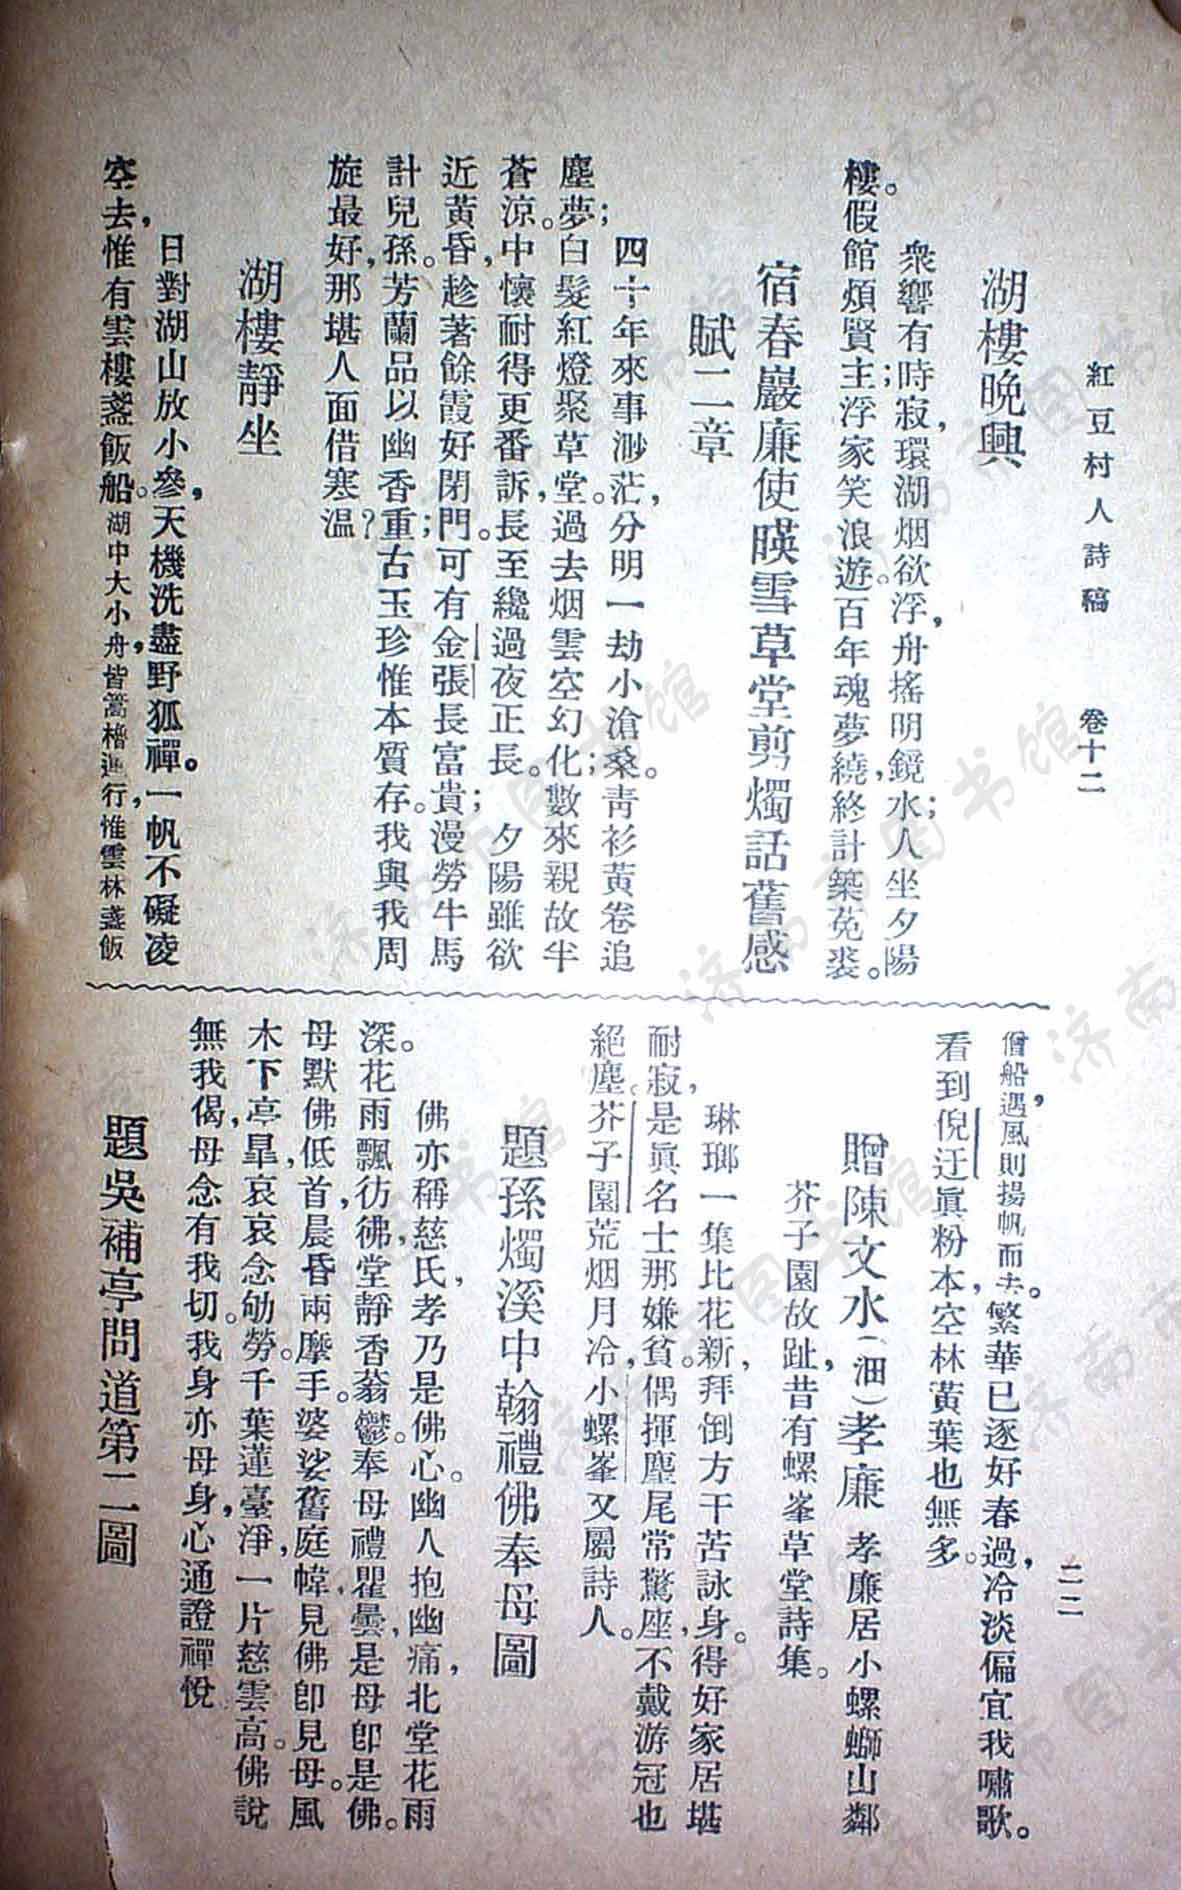 紅豆村人詩稿　卷十二　二二
湖樓晚興
衆響有時寂，環湖烟欲浮，舟搖明鏡水；人坐夕陽
樓。假館煩賢主；浮家笑浪遊。百年魂夢繞，終計築菟裘。
宿春巖廉使暎雪草堂剪燭話舊感
賦二章
四十年來事渺茫，分明一劫小滄桑。青衫黃卷追
塵夢；白髮紅燈聚草堂。過去烟雲空幻化；數來親故半
蒼涼。中懷耐得更番訴，長至纔過夜正長。夕陽雖欲
近黃昏，趁著餘霞好閉門。可有金張長富貴；漫勞牛馬
計兒孫。芳蘭品以幽香重；古玉珍惟本質存。我與我周
旋最好，那堪人面借寒溫？
湖樓靜坐
日對湖山放小參，天機洗盡野狐禪。一帆不礙凌
空去，惟有雲樓盞飯船。湖中大小舟皆篙櫓進行，惟雲林盞飯
僧船遇風則揚帆而去。繁華已逐好春過，冷淡偏宜我嘯歌。
看到倪迂眞粉本，空林黃葉也無多。
贈陳文水（沺）孝廉　孝廉居小螺螄山鄰
芥子園故趾，昔有螺峯草堂詩集。
琳瑯一集比花新，拜倒方干苦詠身。得好家居堪
耐寂，是眞名士那嫌貧。偶揮麈尾常驚座，不戴游冠也
絕塵。芥子園荒烟月冷，小螺峯又屬詩人。
題孫燭溪中翰禮佛奉母圖
佛亦稱慈氏，孝乃是佛心。幽人抱幽痛，北堂花雨
深。花雨飄彷彿，堂靜香蓊鬱。奉母禮瞿曇，是母卽是佛。
母默佛低首，晨昏兩摩手。婆娑舊庭幃，見佛卽見母。風
木下亭臯，哀哀念劬勞。千葉蓮臺淨，一片慈雲高。佛說
無我偈，母念有我切。我身亦母身，心通證禪悅
題吳補亭問道第二圖